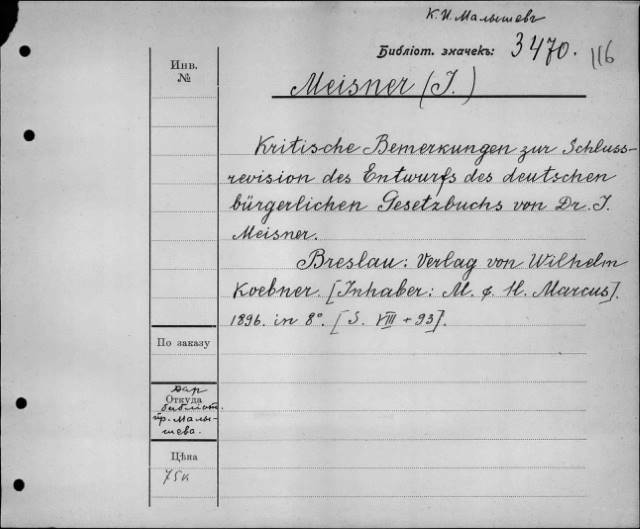 К. И. Малышевъ
Библіот. значекъ: 3470.
116
Инв.
№
Meisner (J.)
Kritische Bemerkungen zur Schluss-
revision des Entwurfs des deutschen
bürgerlichen Gesetzbuchs von Dr. J.
Meisner.
Breslau: Verlag von Wilhelm
Koebner. [Inhaber: M. & H. Marcus].
1896. in 8°. [S. VIII + 93].
По заказу
Дар
Откуда
библіот.
пр. Малы-
шева.
Цѣна
75к